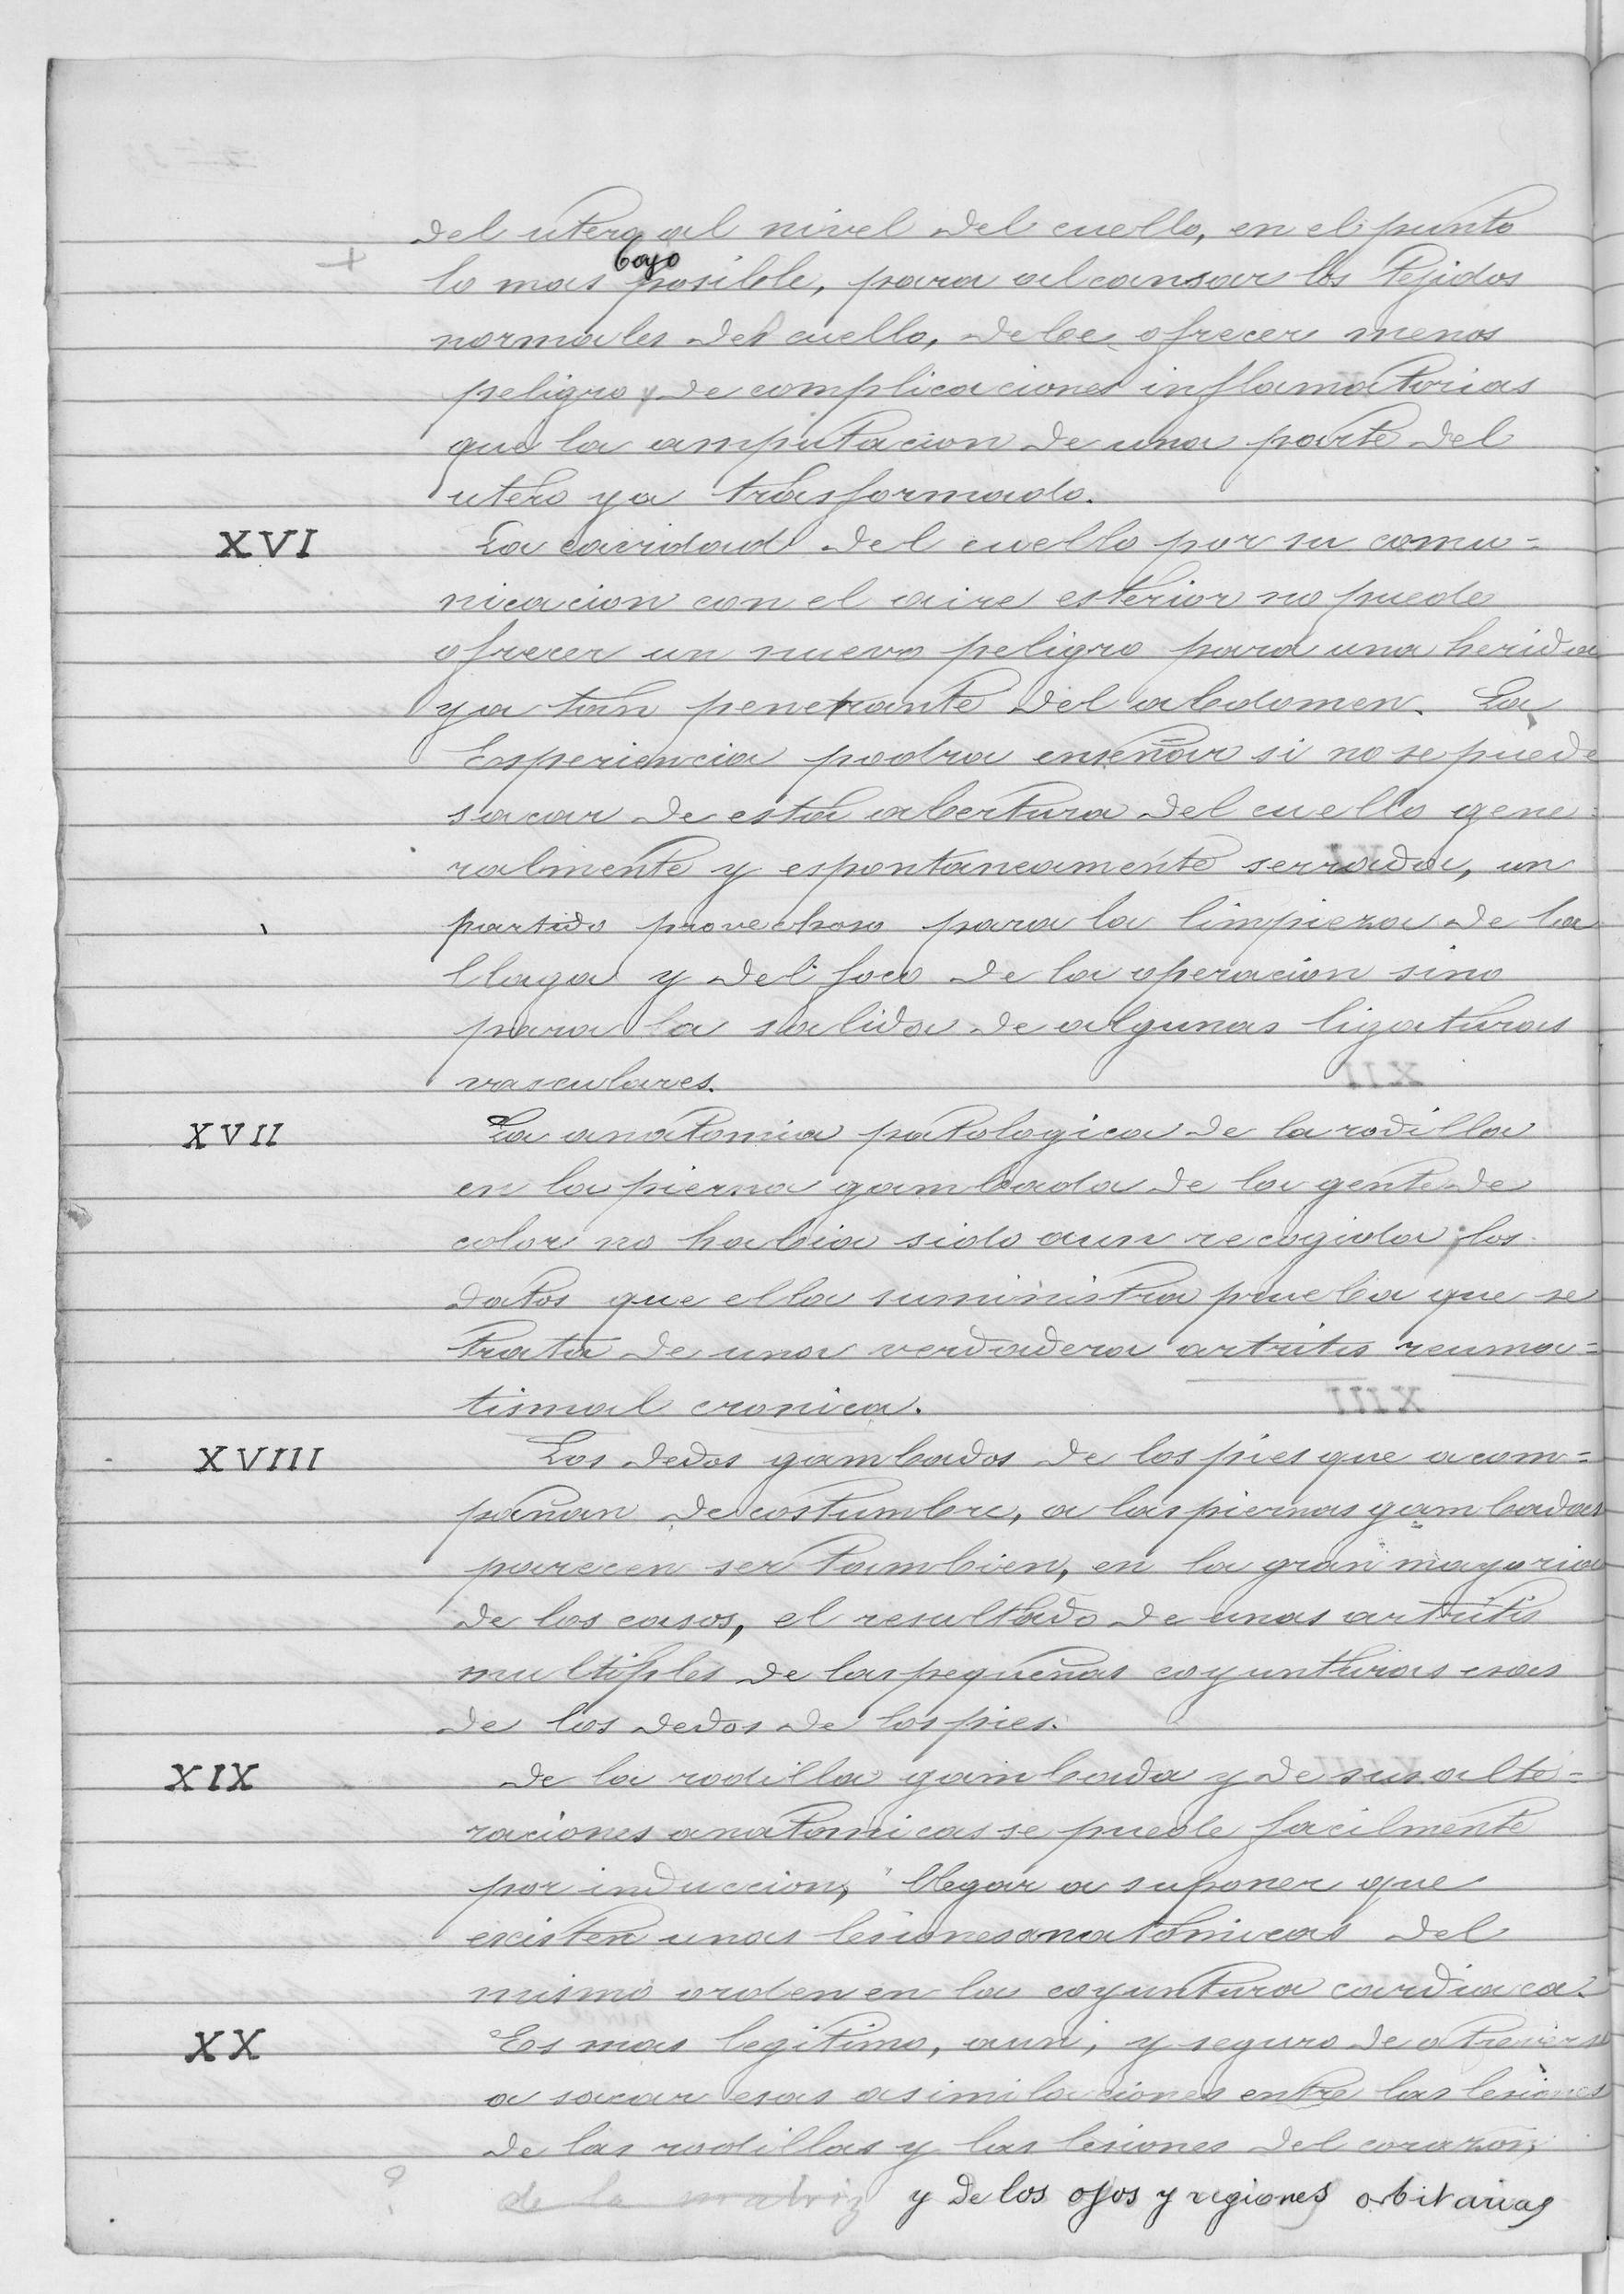 del utero al nivel del cuello, en el punto
bajo
lo mas posible, para alcansar los tejidos
normales del cuello, debe ofrecer menos
peligro y de complicaciones inflamatorias
que la amputacion de una parte del
utero ya trasformado.
XVI La cavidad del cuello por su comu=
nicacion con el aire esterior no puede
ofrecer un nuevo peligro para una herida
ya tan penetrante del abdomen. La
Esperiencia podra enseñar si no se puede
sacar de esta abertura del cuello gene=
ralmente y espontaneamente serrada, un
partido provechoso para la limpieza de la
llaga y del foco de la operacion sino
para la salida de algunas ligaturas
vasculares.
XVII La anatomia patologica de la rodilla
en la pierna gambada de la gente de
color no habia sido aun recogida; los
datos que ella suministra prueba que se
trata de una verdadera artritis reuma=
tismal cronica.
XVIII Los dedos gambados de los pies que acom=
pañan de costumbre, a las piernas gambadas
parecen ser tambien, en la gran mayoria
de los casos, el resultado de unas artritis
multiples de las pequeñas coyunturas esas
de los dedos de los pies.
XIX De la rodilla gambada y de sus alte=
raciones anatomicas se puede facilmente
por induccion, llegar a suponer que
existen unas lesiones anatomicas del
mismo orden en la coyuntura cardiaca.
XX Es mas legitimo, aun, y seguro de atreverse
a sacar esas asimilaciones entre las lesiones
de las rodillas y las lesiones del corazon,
de la matriz y de los ojos y regiones orbitarias